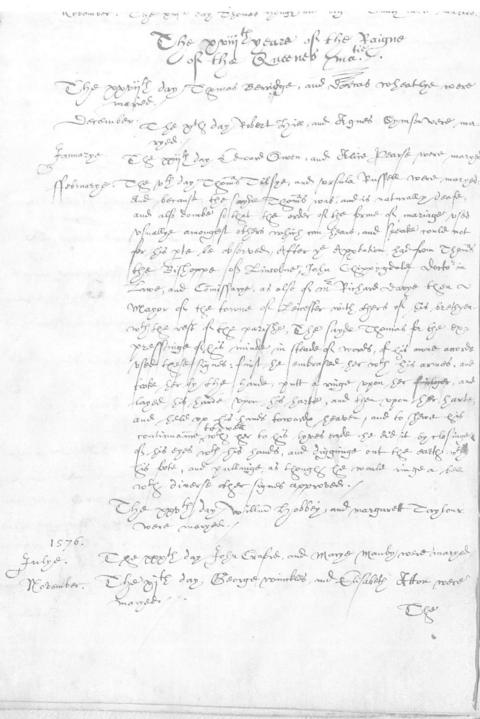 The xviijth yeare of the Raigne
of the Queenes Matie.
The xxviijth day Thomas Berridge, and Dorcas wheatlye were
maryed.
December. The xth day Robert Hill, and Agnes Symson were ma
ryed.
Januarye The xxijth day Edward Owen, and Alice Pearse were, maryed
ffebruarye. The vth day Thomas Tilsye, and Ursula Russell were, maryed:
And because, the sayde Thomas was, and is naturally deafe,
and also dombe, so that the order of the forme of, mariage, used
usuallye amongest others which can heare, and speake could not
for his pte, be, observed: After ye Approbation had from Thomas
the Bishoppe of Lincolne, John Chippendale doctor in
Lawe, and Comissarye, as also of Mr Richard Davye then
Mayor of the towne of Leicester with others of, his, brethren
wth the rest of the parishe, The sayde Thomas for the ex,
pressinge of, his minde, in steade of words, of his owne accorde
used these signes: first he embraced her wth his armes, and
tooke her by the hande, putt a ringe upon her finger, and
layed his hande upon his harte, and then upon her, harte,
and held up his hands towards heaven; and to shewe his
continuaunce to dwell wth her to his lyves ende, he did it by closinge
of, his eyes wth his hands, and digginge out the earth wth
his fote, and pullinge, as though he would ringe a bell
wth diverse other signes approved.
The xxvth day William Hebbey, and margarett Taylour
were maryed.
1576.
Julye. The xxxth day John Crafte, and Marye Manby, were, maryed
November. The xjth day George and Elisabeth Atton were
maryed.
The